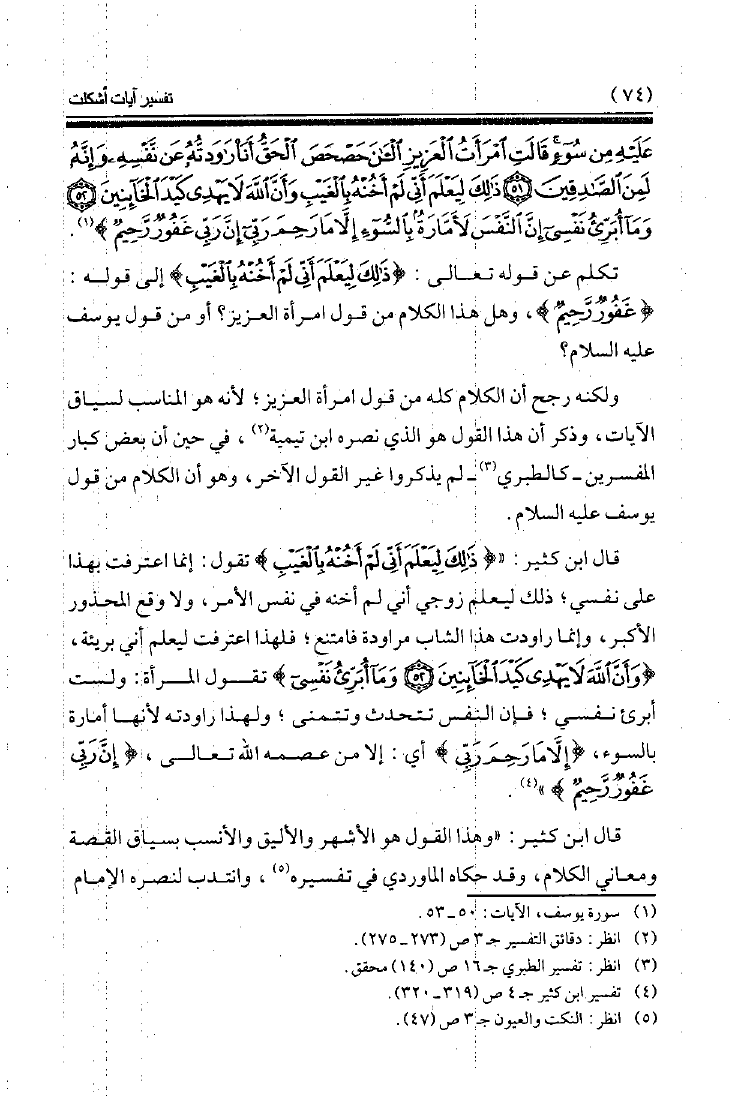 (٧٤) تفسير آيات أشكلت
عَلَيْهِ مِن سُوٓءٍ قَالَتِ ٱمْرَأَتُ ٱلْعَزِيزِ ٱلْـَٰٔنَ حَصْحَصَ ٱلْحَقُّ أَنَا۠ رَٰوَدتُّهُۥ عَن نَّفْسِهِۦ وَإِنَّهُۥ
لَمِنَ ٱلصَّٰدِقِينَ ۝٥١ ذَٰلِكَ لِيَعْلَمَ أَنِّى لَمْ أَخُنْهُ بِٱلْغَيْبِ وَأَنَّ ٱللَّهَ لَا يَهْدِى كَيْدَ ٱلْخَآئِنِينَ ۝٥٢
وَمَآ أُبَرِّئُ نَفْسِىٓ إِنَّ ٱلنَّفْسَ لَأَمَّارَةٌۢ بِٱلسُّوٓءِ إِلَّا مَا رَحِمَ رَبِّىٓ إِنَّ رَبِّى غَفُورٌ رَّحِيمٌ ﴾(١).
تكلم عن قوله تعالى : ﴿ذَٰلِكَ لِيَعْلَمَ أَنِّى لَمْ أَخُنْهُ بِٱلْغَيْبِ﴾ إلى قوله :
﴿ غَفُورٌ رَّحِيمٌ ﴾ ، وهل هذا الكلام من قول امرأة العزيز؟ أو من قول يوسف
عليه السلام؟
ولكنه رجح أن الكلام كله من قول امرأة العزيز ؛ لأنه هو المناسب لسياق
الآيات ، وذكر أن هذا القول هو الذي نصره ابن تيمية(٢) ، في حين أن بعض كبار
المفسرين ـ كالطبري(٣) ـ لم يذكروا غير القول الآخر ، وهو أن الكلام من قول
يوسف عليه السلام .
قال ابن كثير : «﴿ ذَٰلِكَ لِيَعْلَمَ أَنِّى لَمْ أَخُنْهُ بِٱلْغَيْبِ ﴾ تقول : إنما اعترفت بهذا
على نفسي ؛ ذلك ليعلم زوجي أني لم أخنه في نفس الأمر ، ولا وقع المحذور
الأكبر ، وإنما راودت هذا الشاب مراودة فامتنع ؛ فلهذا اعترفت ليعلم أني بريئة ،
﴿وَأَنَّ ٱللَّهَ لَا يَهْدِى كَيْدَ ٱلْخَآئِنِينَ ۝٥٢ وَمَآ أُبَرِّئُ نَفْسِىٓ ﴾ تقول المرأة : ولست
أبرئ نفسي ؛ فإن النفس تتحدث وتتمنى ؛ ولهذا راودته لأنها أمارة
بالسوء ، ﴿إِلَّا مَا رَحِمَ رَبِّىٓ ﴾ أي : إلا من عصمه الله تعالى ، ﴿ إِنَّ رَبِّى
غَفُورٌ رَّحِيمٌ ﴾ »(٤) .
قال ابن كثير : «وهذا القول هو الأشهر والأليق والأنسب بسياق القصة
ومعاني الكلام ، وقد حكاه الماوردي في تفسيره(٥) ، وانتدب لنصره الإمام
(١) سورة يوسف ، الآيات : ٥٠ـ٥٣ .
(٢) انظر : دقائق التفسير جـ٣ ص (٢٧٣ـ٢٧٥) .
(٣) انظر : تفسير الطبري جـ١٦ ص (١٤٠) محقق .
(٤) تفسير ابن كثير جـ٤ ص (٣١٩ـ٣٢٠) .
(٥) انظر : النكت والعيون جـ٣ ص (٤٧) .